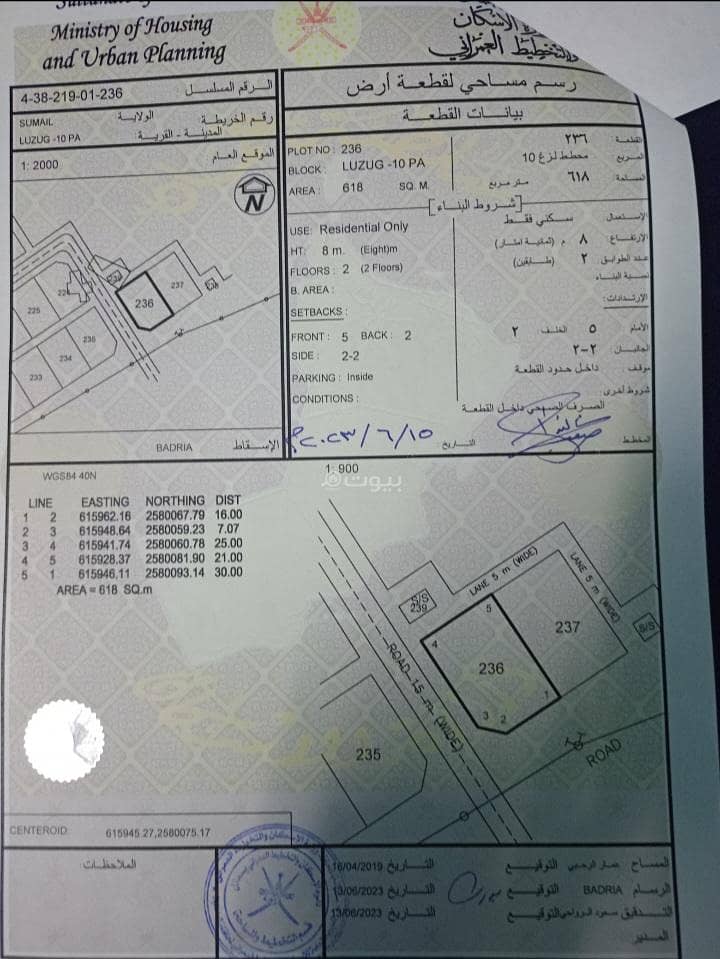 Ministry of Housing
and Urban Planning
الإسكان
والتخطيط العمراني
4-38-219-01-236
الرقم المسلسل
SUMAIL
الولاية
رقم الخريطة:
LUZUG -10 PA
المدينة - القرية:
1: 2000
الموقع العام
N
225
233
234
235
236
237
BADRIA
الإسقاط
رسم مساحي لقطعة أرض
بيانات القطعة
PLOT NO : 236
٢٣٦
القطعة
BLOCK : LUZUG -10 PA
مخطط لزغ 10
المربع
AREA : 618 SQ. M.
متر مربع ٦١٨
المساحة
شروط البناء
USE: Residential Only
سكني فقط
الإستعمال
HT: 8 m. (Eight)m
٨ م (ثمانية امتار)
الإرتفاع:
FLOORS : 2 (2 Floors)
٢ (طابقين)
عدد الطوابق
B. AREA :
نسبة البناء
SETBACKS :
الإرتدادات:
FRONT : 5 BACK : 2
الأمام ٥ الخلف ٢
SIDE : 2-2
الجانبان ٢-٢
PARKING : Inside
موقف: داخل حدود القطعة
CONDITIONS :
شروط أخرى:
الصرف الصحي داخل القطعة
٢٠٢٣/٦/١٥
التاريخ
المخطط
WGS84 40N
1: 900
بيوت
LINE EASTING NORTHING DIST
1 2 615962.16 2580067.79 16.00
2 3 615948.64 2580059.23 7.07
3 4 615941.74 2580060.78 25.00
4 5 615928.37 2580081.90 21.00
5 1 615946.11 2580093.14 30.00
AREA = 618 SQ.m
S/S
239
LANE 5 m (WIDE)
LANE 5 m (WIDE)
5
4
237
S/S
236
ROAD 15 m (WIDE)
1
3 2
235
ROAD
CENTEROID: 615945.27,2580075.17
الملاحظات:
المساح
التوقيع
التاريخ 16/04/2019
الرسام BADRIA
التوقيع
التاريخ 13/06/2023
التدقيق سعود الرواحي
التوقيع
التاريخ 13/06/2023
المدير